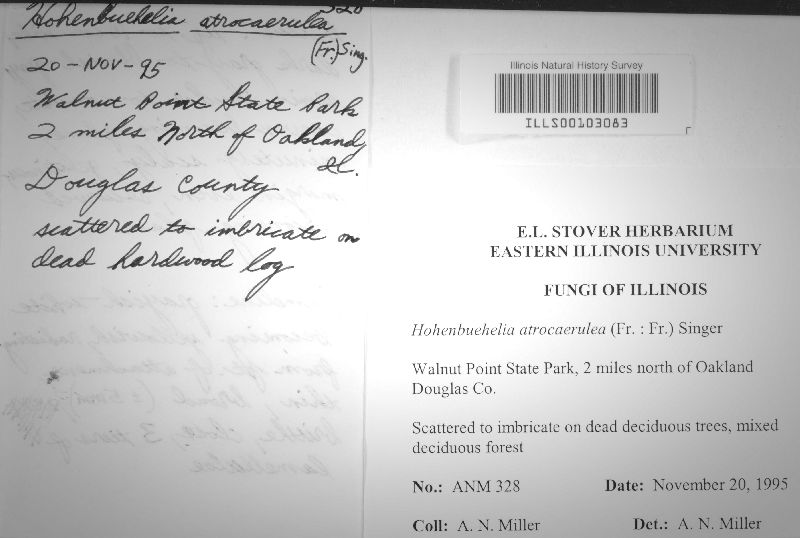 Hohenbuehelia atrocaerulea
(Fr.) Sing.
20-NOV-95
Walnut Point State Park
2 miles North of Oakland,
Il.
Douglas County
scattered to imbricate on
dead hardwood log
Illinois Natural History Survey
ILLS00103083
E.L. STOVER HERBARIUM
EASTERN ILLINOIS UNIVERSITY
FUNGI OF ILLINOIS
Hohenbuehelia atrocaerulea (Fr. : Fr.) Singer
Walnut Point State Park, 2 miles north of Oakland
Douglas Co.
Scattered to imbricate on dead deciduous trees, mixed
deciduous forest
No.: ANM 328 Date: November 20, 1995
Coll: A. N. Miller Det.: A. N. Miller